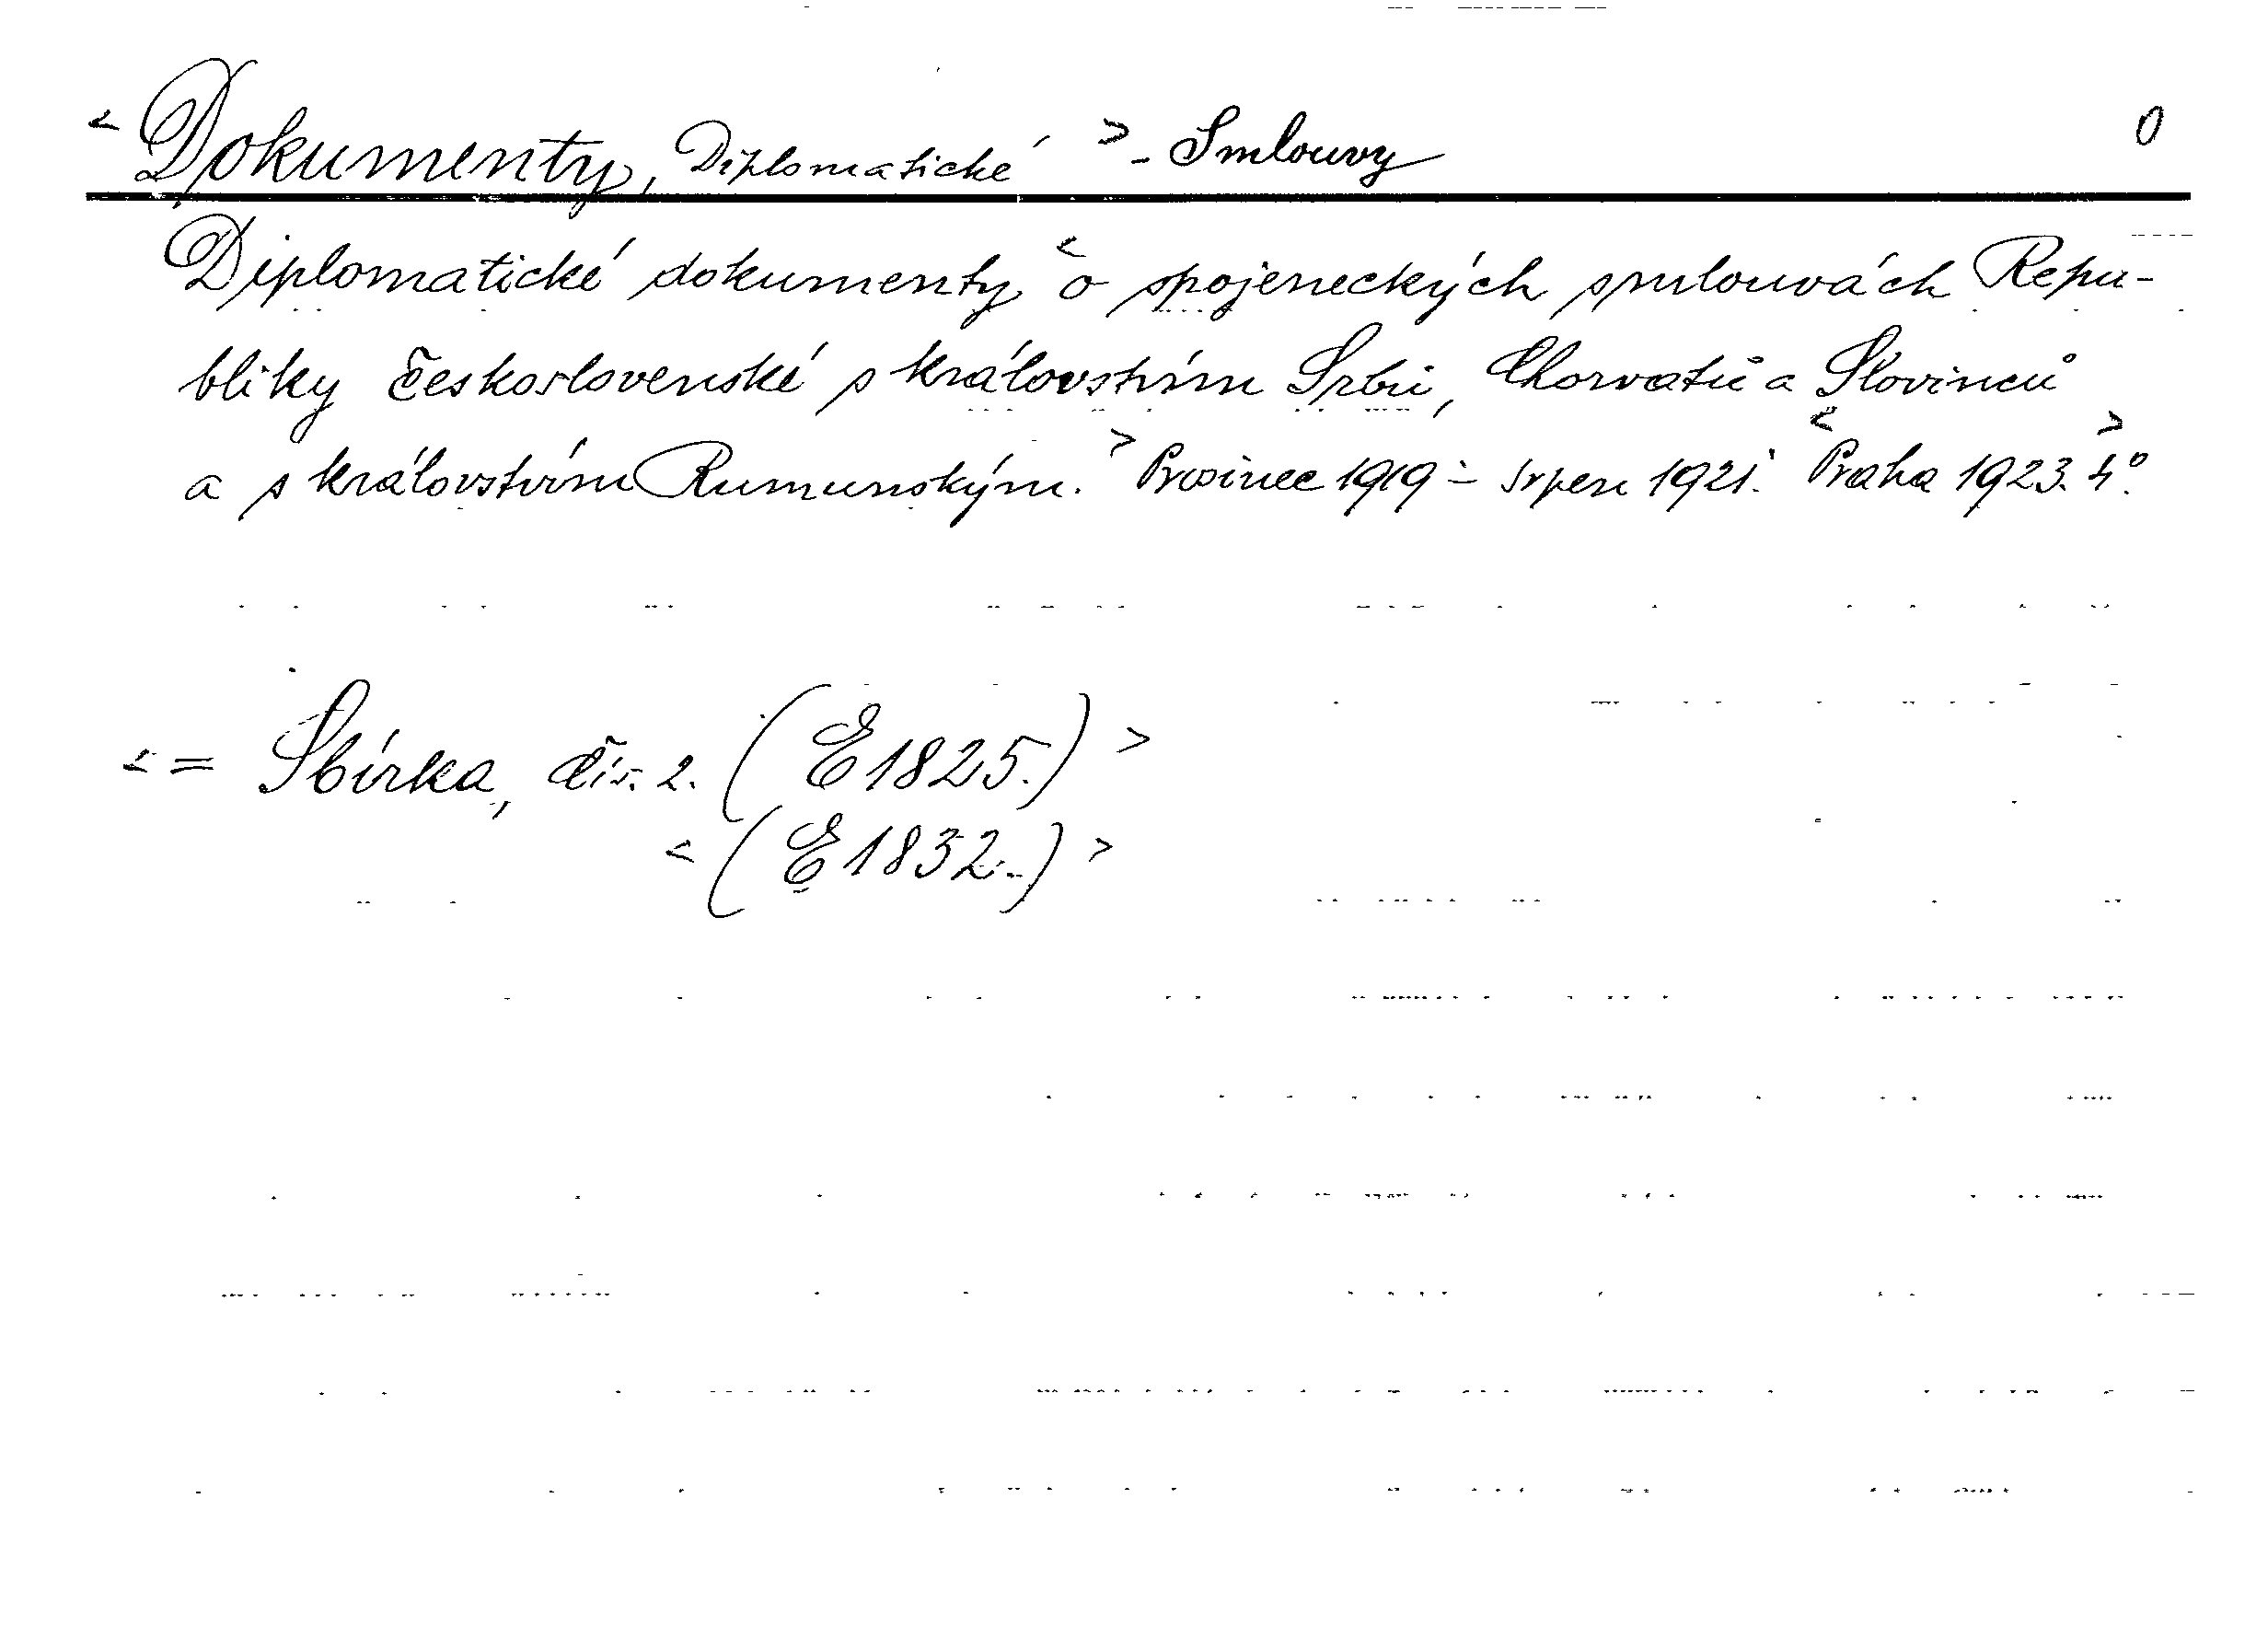 < Dokumenty, Diplomatické > - Smlouvy 0
Diplomatické dokumenty < o spojeneckých smlouvách Repu-
bliky československé s královstvím Srbů, Chorvatů a Slovinců
a s královstvím Rumunským. > Prosinec 1919 - srpen 1921. < Praha 1923. 4°. >
< = Sbírka, čís. 2. (E 1825.) >
< (E 1832.-) >